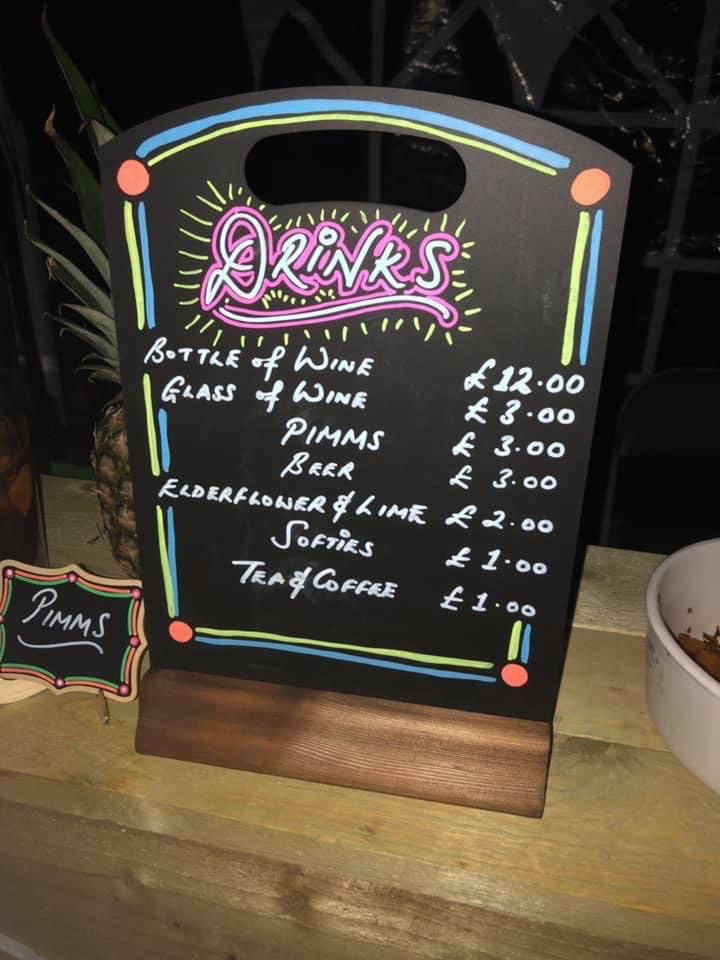 DRINKS
BOTTLE of WINE £12.00
GLASS of WINE £3.00
PIMMS £3.00
BEER £3.00
ELDERFLOWER & LIME £2.00
SOFTIES £1.00
TEA & COFFEE £1.00
PIMMS